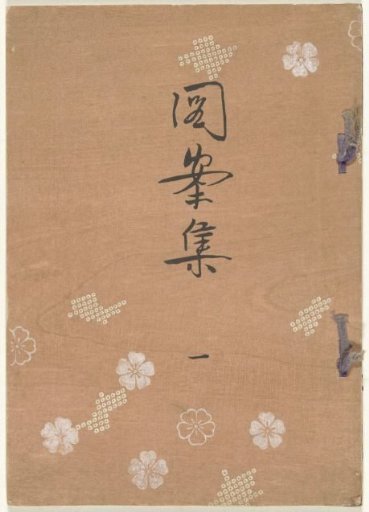 図案集
一